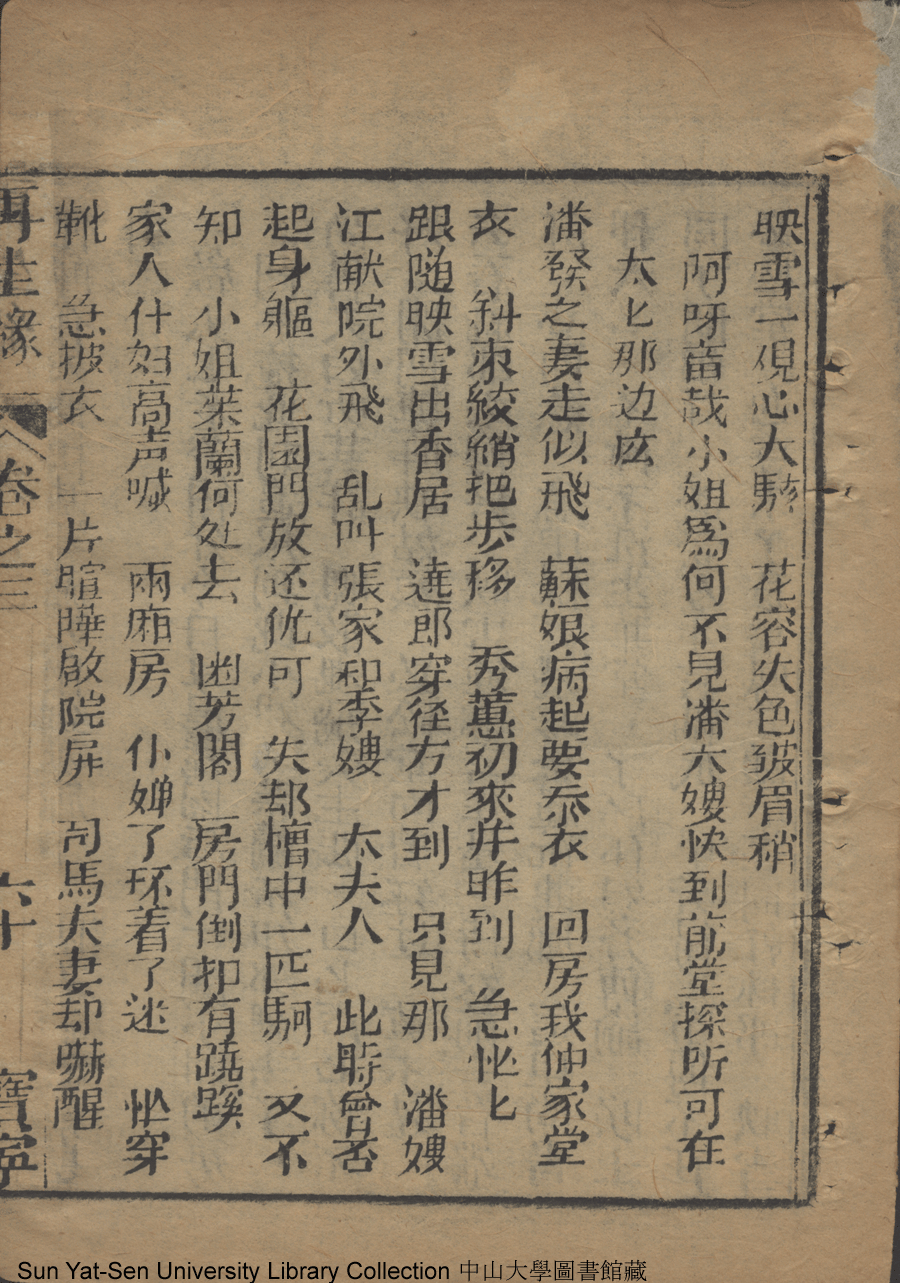 映雪一覌心大駭　花容失色皱眉稍
阿呀畜哉小姐爲何不見潘六嫂快到前堂探听可在
太匕那边庅
潘發之妻走似飛　蘇娘病起要忝衣　回房我仲家堂
衣　斜朿絞綃把歩移　秀蕙初來井昨到　急忙匕
跟随映雪出香居　遶郎穿径方才到　只見那　潘嫂
江献院外飛　乱叫張家和李嫂　太夫人　此時曾否
起身軀　花園門放还优可　失却槽中一匹駒　又不
知　小姐茱蘭何处去　幽芳閣　房門倒扣有蹺蹊
家人什妇高声喊　兩廂房　仆婢了环着了迷　忙穿
靴　急披衣　一片暄嘩啟院屏　司馬夫妻却嚇醒
再生緣　卷之三　六十　寶寧
Sun Yat-Sen University Library Collection 中山大學圖書館藏